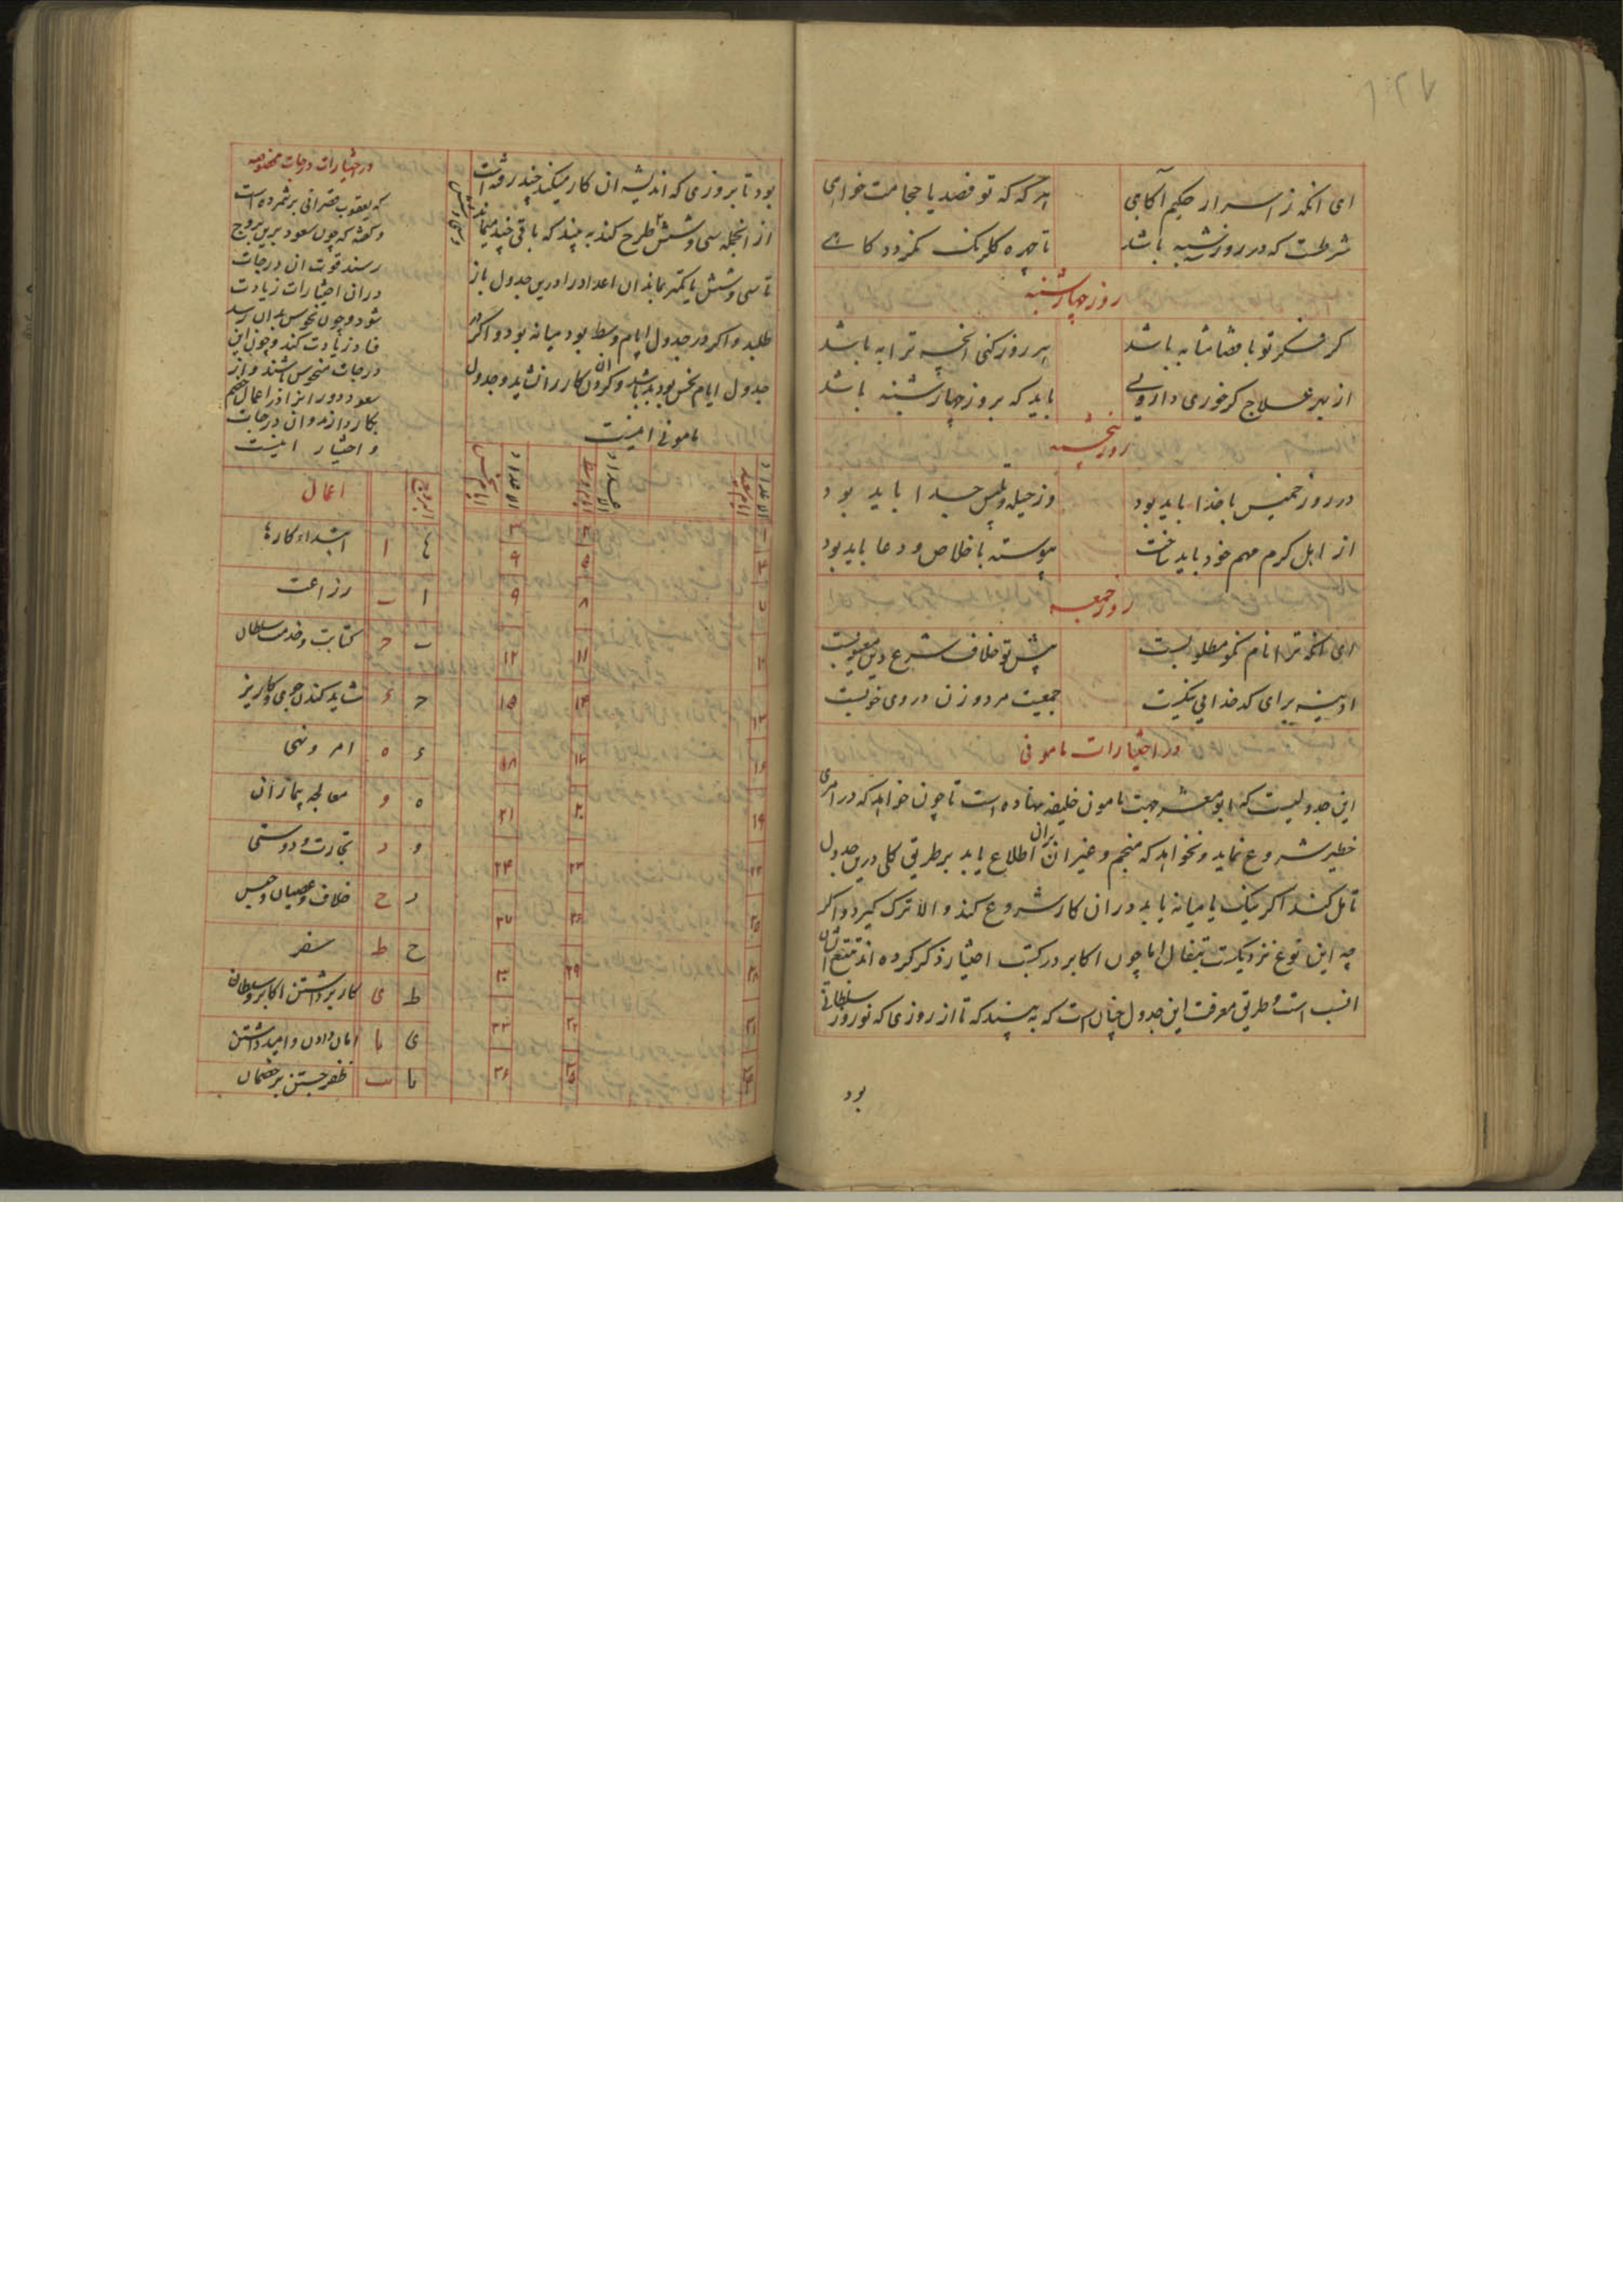 ای انکه ز اسرار حکیم آگاهی هر گه که تو فصد یا حجامت خواهی
شرطست که در روز سه شنبه باشد تا چهره گلرنگ نگردد کاهی
روز چهارشنبه
گر فکر تو با قضا مشابه باشد هر روز کنی انچه ترا به باشد
از بهر علاج گر خوری دارویی باید که بروز چهارشنبه باشد
روز پنجشنبه
در روز خمیس با خدا باید بود وز حیله و تلبیس جدا باید بود
از اهل کرم مهم خود باید ساخت پیوسته باخلاص و دعا باید بود
روز جمعه
ای انکه ترا نام نکو مطلوبست پیش تو خلاف شرع و دین معیوبست
ادینه برای کدخدایی نیکست جمعیت مرد و زن در وی خوبست
در اختیارات مامونی
این جدولیست که ابو معشر جهت مامون خلیفه نهاده است تا چون خواهد که در امری
خطیر شروع نماید و نخواهد که منجم و غیر ان بران اطلاع یابد بر طریق کلی درین جدول
تامل کند اگر نیک یا میانه یابد دران کار شروع کند و الا ترک گیرد و اگر
چه این نوع نزدیکست بتفال اما چون اکابر در کتب اختیار ذکر کرده اند تتبع ایشان
انسب است و طریق معرفت این جدول چنان است که ببینند که تا از روزی که نوروز سلطانی
بود
بود تا بروزی که اندیشه ان کار میکنید چند رفته است
از انجمله سی و شش طرح کند ببیند که باقی چند میماند
تا سی و شش یا کمتر بماند ان اعداد را درین جدول باز
طلبد و اگر در جدول ایام وسط بود میانه بود و اگر در
جدول ایام نحس بود بد باشد و کردن ان کار را نشاید و جدول
مامونی اینست
الاعداد ایام سعد الاعداد ایام وسط الاعداد ایام نحس
۲ ۳
۵ ۹
۸ ۹
۱۱ ۱۲
۱۳ ۱۴ ۱۵
۱۶ ۱۷ ۱۸
۱۹ ۲۰ ۲۱
۲۲ ۲۳ ۲۴
۲۵ ۲۶ ۲۷
۲۹ ۳۰
۳۱ ۳۲ ۳۳
۳۴ ۳۵ ۳۶
در اختیارات درجات مخصوصه
که یعقوب قصرانی بر شمرده است
و گفته که چون سعود برین بروج
رسند قوت ان درجات
دران اختیارات زیادت
شود و چون نحوس بدان رسد
فساد زیادت کند و چون این
درجات منحوس باشند و از
سعود دور
بکار دارند و ان درجات
و اختیار اینست
البروج اعمال
ابتداء کارها
ا ب زراعت
ب ج کتابت و خدمت سلطان
ج د شاید کندن جوی و کاریز
د ه امر و نهی
ه و معالجه بیماران
و ز تجارت و دوستی
ز ح خلاف و عصیان و حبس
ح ط سفر
ط ی کار بر داشتن اکابر و سلطان
ی یا امان دادن و امید داشتن
یا یب ظفر جستن بر خصمان